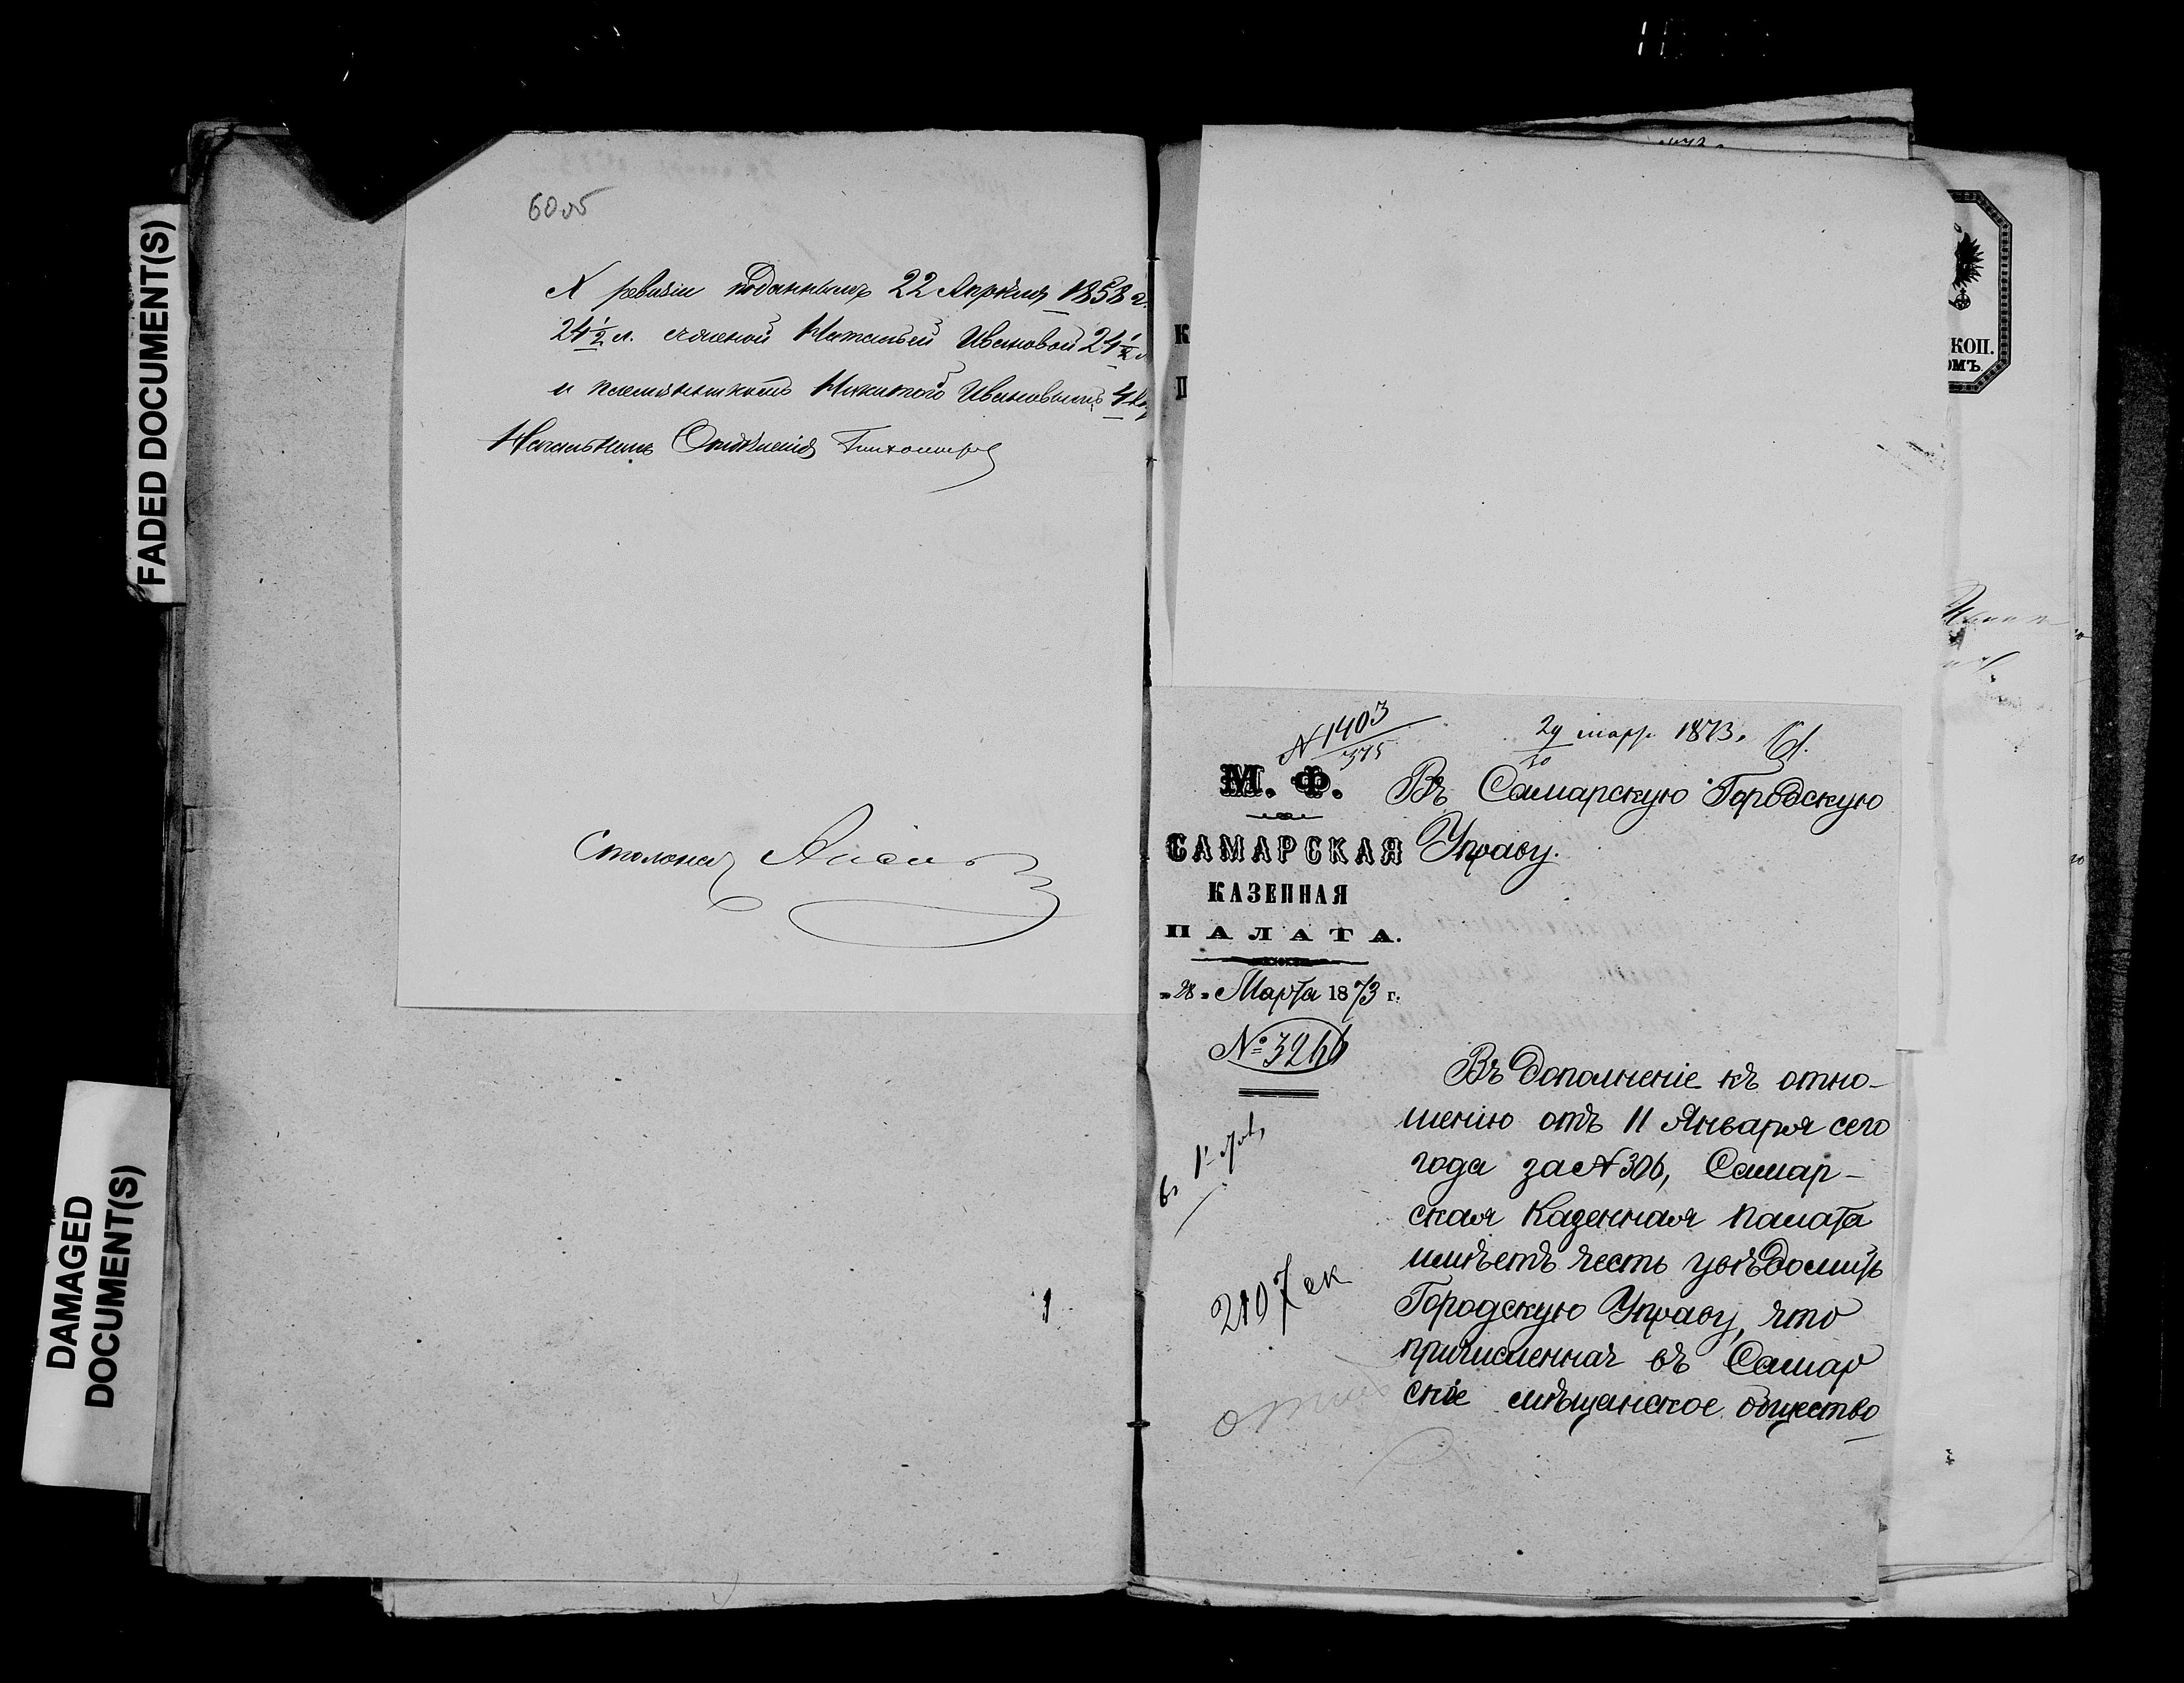 FADED DOCUMENT(S)
DAMAGED
DOCUMENT(S)
60 об
X ревизіи поданнымъ 22 Апрѣля 1858 г.
24 ½ л. съ женой Натальей Ивановой 24 ½ л
и племянникомъ Никитою Ивановымъ 4
Начальникъ Отдѣленія Тихомиров
Столонач
КОП.
ОМЪ.
К
П
N 1403
375
29 март. 1873.
М. Ф.
САМАРСКАЯ
КАЗЕННАЯ
ПАЛАТА.
„28" Марта 1873 г.
№ 3266
2107 ск
Въ Самарскую Городскую
Управу.
Въ дополненіе къ отно-
шенію отъ 11 Января сего
года за N 306, Самар-
ская Казенная Палата
имѣетъ честь увѣдомить
Городскую Управу, что
причисленная въ Самар
скіе мѣщанское общество